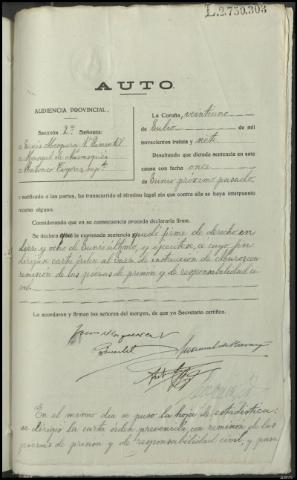 L.2750.303
AUTO.
AUDIENCIA PROVINCIAL.
Sección 2ª Señores:
La Coruña, veintiuno
de Julio de mil
novecientos treinta y siete
Resultando que dictada sentencia en esta
causa con fecha once
de Junio próximo pasado
y notificada a las partes, ha transcurrido el término legal sin que contra ella se haya interpuesto
recurso alguno.
Considerando que en su consecuencia procede declararla firme.
Se declara que la expresada sentencia quedó firme de derecho en
diez y ocho de Junio último, y ejecútese, a cuyo fin
diríjase carta orden al Juez de instrucción de
remisión de las piezas de prisión y de responsabilidad ci-
vil.
Lo acordaron y firman los señores del margen, de que yo Secretario certifico.
En el mismo día se puso la hoja de estadística:
se dirigió la carta orden prevenida, con remisión de las
piezas de prisión y de responsabilidad civil, y pasa